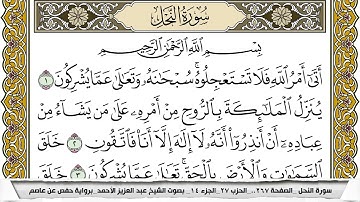 سُورَةُ النَّحْلِ
بِسْمِ اللَّهِ الرَّحْمَٰنِ الرَّحِيمِ
أَتَىٰٓ أَمْرُ ٱللَّهِ فَلَا تَسْتَعْجِلُوهُ سُبْحَٰنَهُۥ وَتَعَٰلَىٰ عَمَّا يُشْرِكُونَ ١
يُنَزِّلُ ٱلْمَلَٰٓئِكَةَ بِٱلرُّوحِ مِنْ أَمْرِهِۦ عَلَىٰ مَن يَشَآءُ مِنْ
عِبَادِهِۦٓ أَنْ أَنذِرُوٓا۟ أَنَّهُۥ لَآ إِلَٰهَ إِلَّآ أَنَا۠ فَٱتَّقُونِ ٢ خَلَقَ
ٱلسَّمَٰوَٰتِ وَٱلْأَرْضَ بِٱلْحَقِّ تَعَٰلَىٰ عَمَّا يُشْرِكُونَ ٣ خَلَقَ
سورة النحل .. الصفحة ٢٦٧ .. الحزب ٢٧ .. الجزء ١٤ .. بصوت الشيخ عبد العزيز الأحمد .. برواية حفص عن عاصم